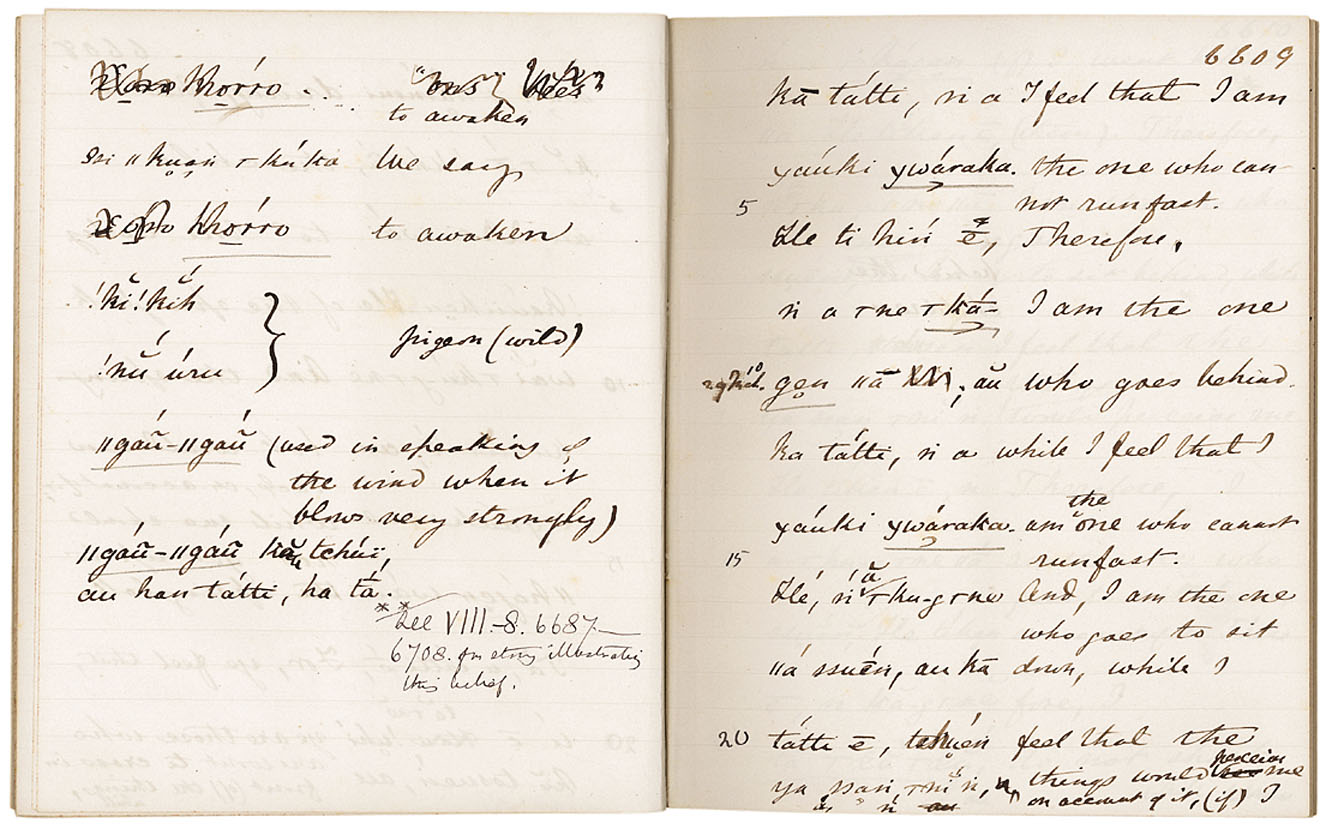 Khórro . . "
to awaken
ssi ǁkuạn ǀkúka We say
Khórro to awaken
!kĭ!kĭh
pigeon (wild)
!nŭ úru
ǁgáŭ-ǁgáŭ (used in speaking of
the wind when it
blows very strongly)
ǁgáŭ-ǁgáŭ tchúĭ,
au han tátti, ha tá.
** See VIII.-8. 6687—
6708. for story illustrating
this belief.
6609
kā tátti, ṅ a I feel that I am
χáuki χwáraka. the one who can-
5 not run fast.
Ĭle ti hiṅ ē, Therefore,
ṅ a ǀne ǀká- I am the one
gẹn ǁā ; aŭ who goes behind.
ka tátti, ṅ a while I feel that I
χáuki χwáraka. am the one who cannot
15 run fast.
Ĭlé, ṅ ă ǀku-g ǀne And, I am the one
who goes to sit
ǁá ssuén, au kā down, while I
20 tátti ē, tchuén feel that the
ya ssaṅ ǀni ṅ, things would perceive me
on account of it, (if) I